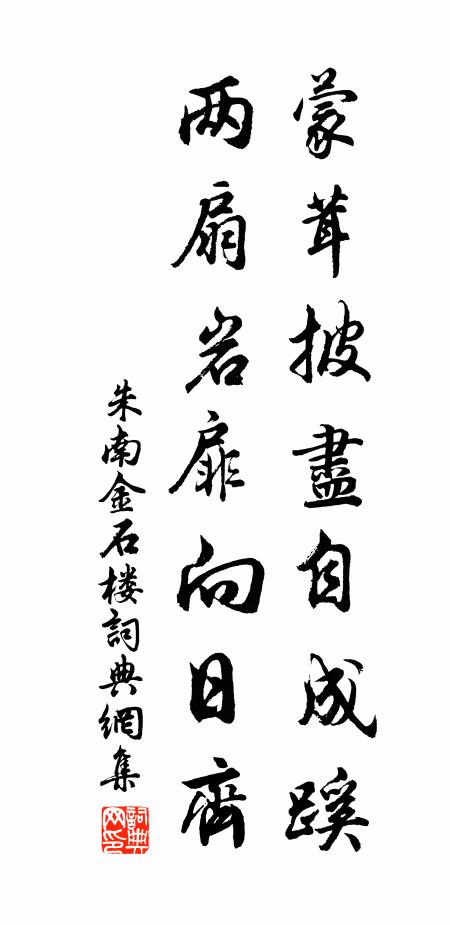 蒙茸披盡自成蹊
两扇岩扉向日齊
朱南金石楼詞典網集
詞典网印